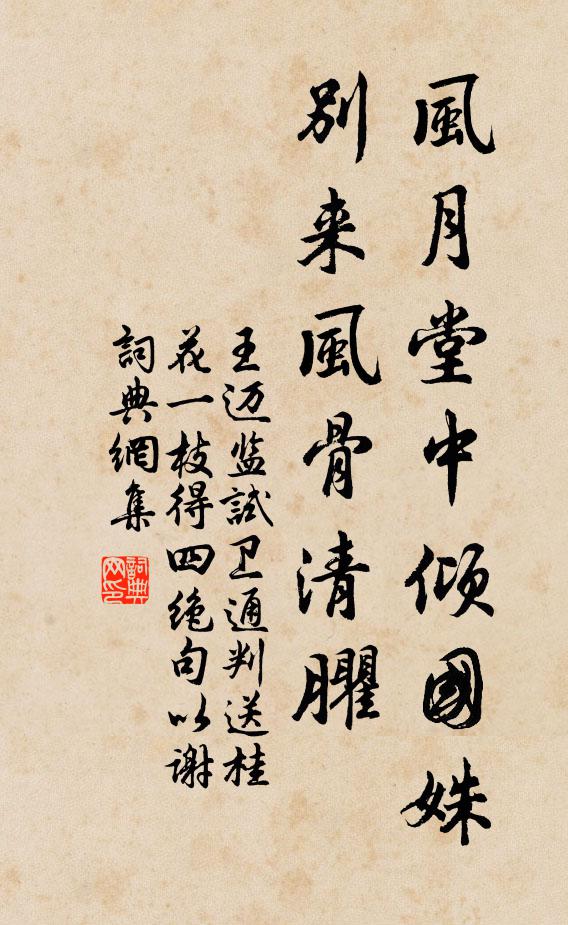 風月堂中倾國姝
別来風骨清臞
王迈监試卫通判送桂
花一枝得四绝句以谢
詞典網集
詞典网印